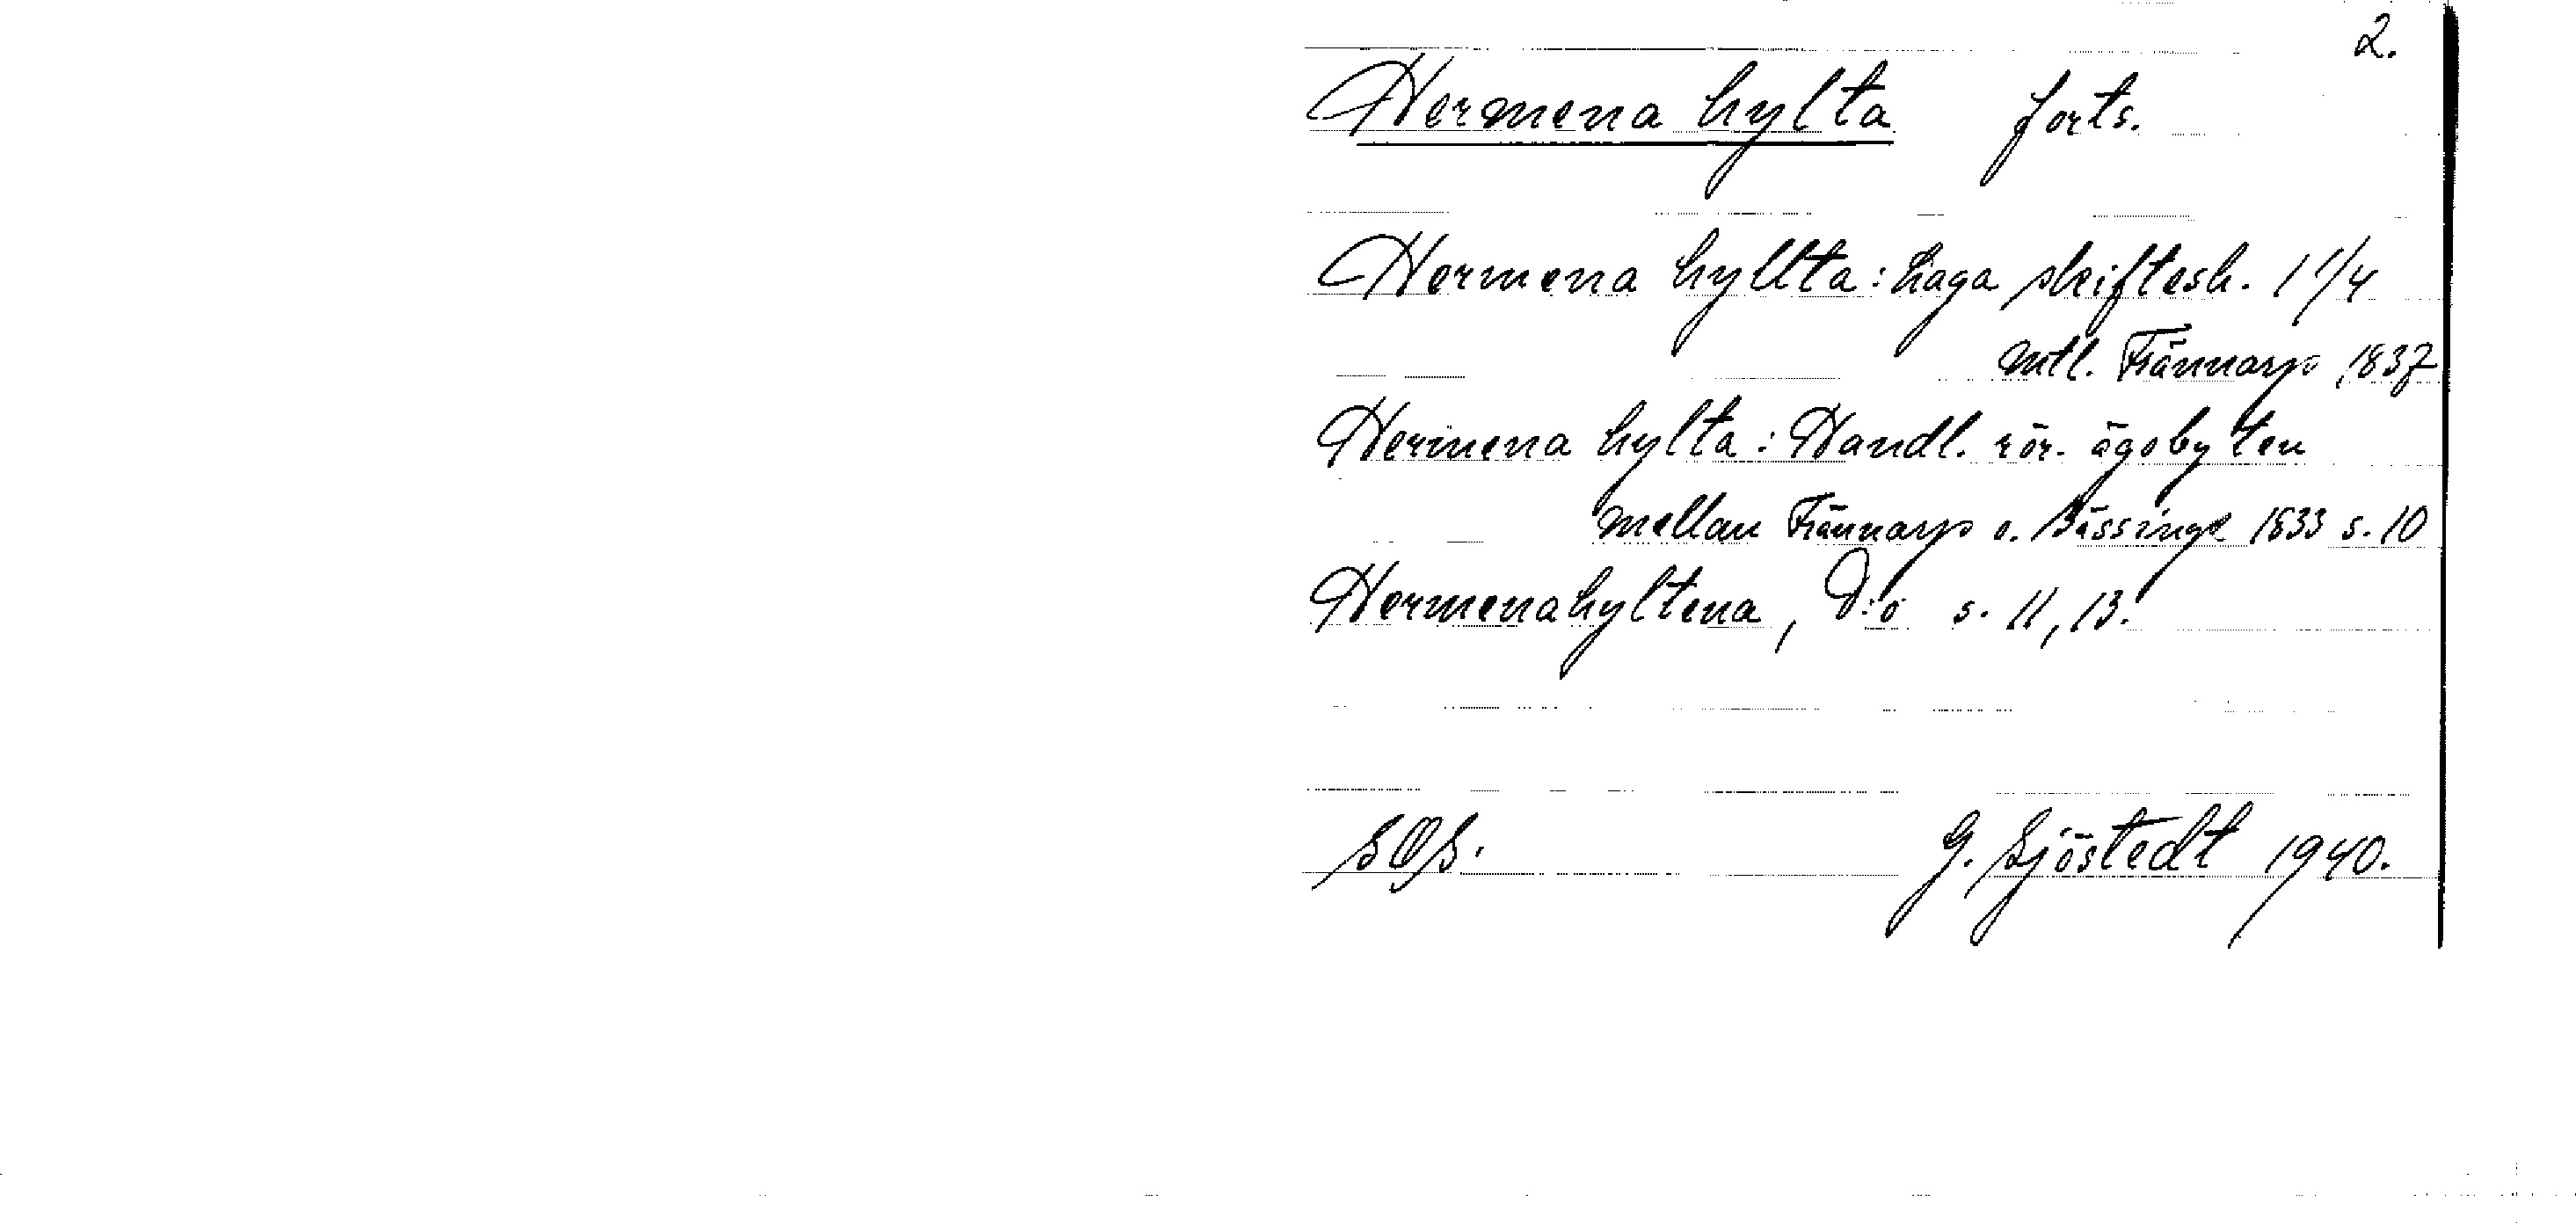 2.
Hermena hylta forts.
Hermena hyllta: Laga skiftesh. 1 1/4
mtl. Frännarp 1837
Hermena hylta: Handl. rör. ägobyten
mellan Frännarp o. Bässinge 1833 s. 10
Hermenahyltena, D:o s. 11, 13.
SOS. G. Sjöstedt 1940.